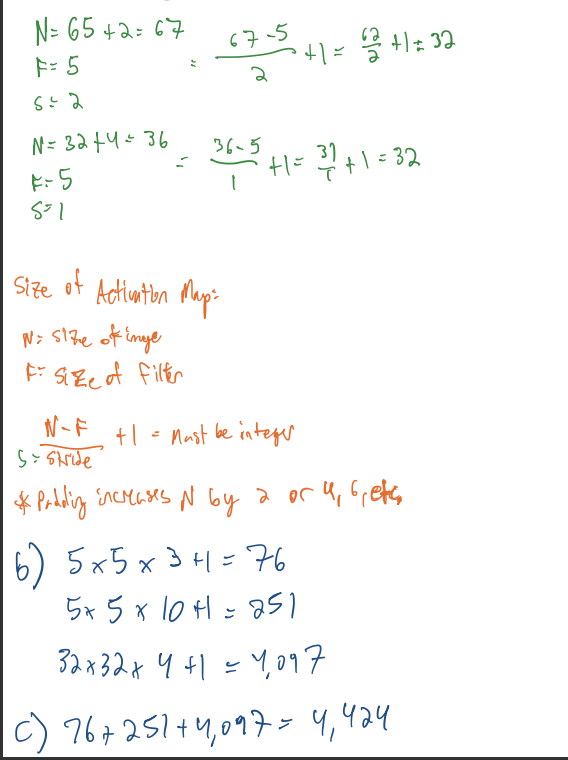 N= 65 +2= 67 = (67-5)/2 +1 = 62/2 +1 = 32
F= 5
S= 2
N= 32+4 = 36 = (36-5)/1 +1= 31/1 +1 = 32
F= 5
S=1
Size of Activation Map:
N= Size of image
F= Size of Filter
(N-F)/(S= Stride) +1 = Must be integer
* Padding increases N by 2 or 4, 6, etc,
b) 5x5 x 3 +1 = 76
5x 5 x 10 +1 = 251
32x32x 4 +1 = 4,097
c) 76+251+4,097= 4,424